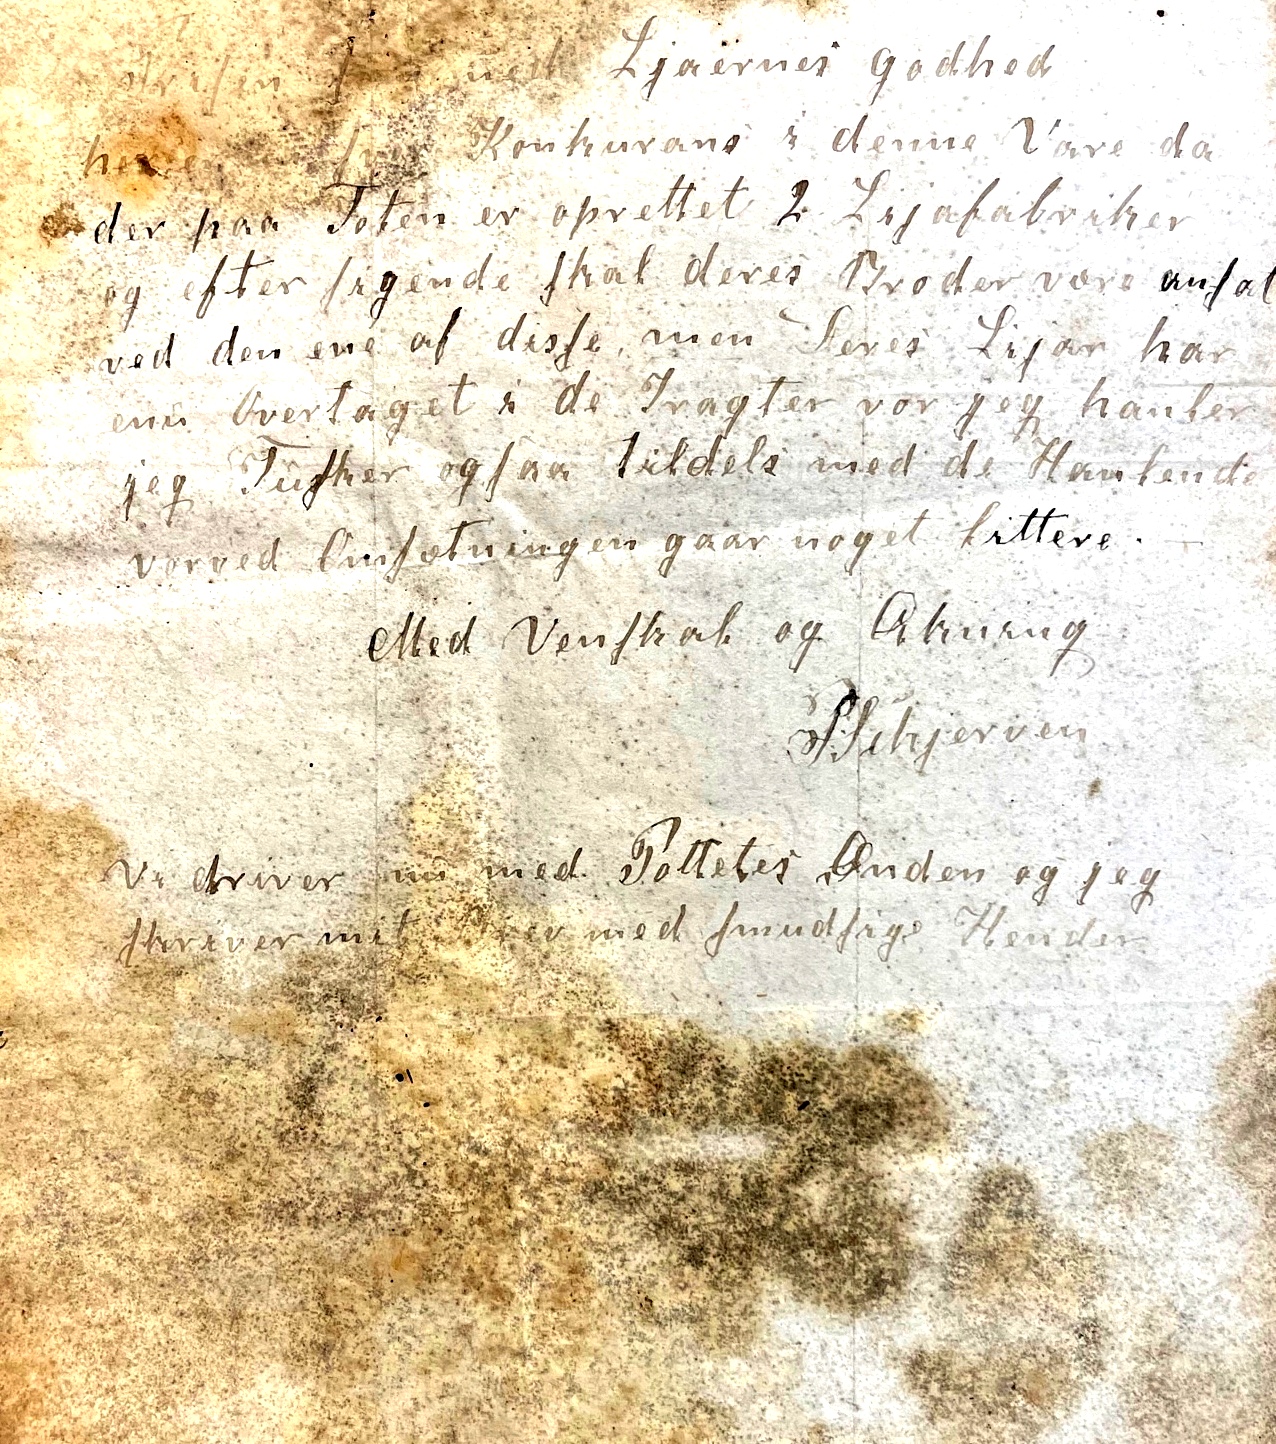 med Ljaernes Godhed
Konkurans i denne Vare da
der paa Toten er oprettet 2 Lijafabriker
og efter sigende skal deres Broder være ansat
ved den ene af disse, men Deres Lijar har
enu Overtaget i de Tragter vor jeg hanler
jeg Tusker ogsaa tildels med de Hanlende
vorved Omsætningen gaar noget littere.
Med Venskab og Aktning
PSchjerven
Vi driver nu med Pottetes Onden og jeg
skriver mit Brev med smudsige Hender